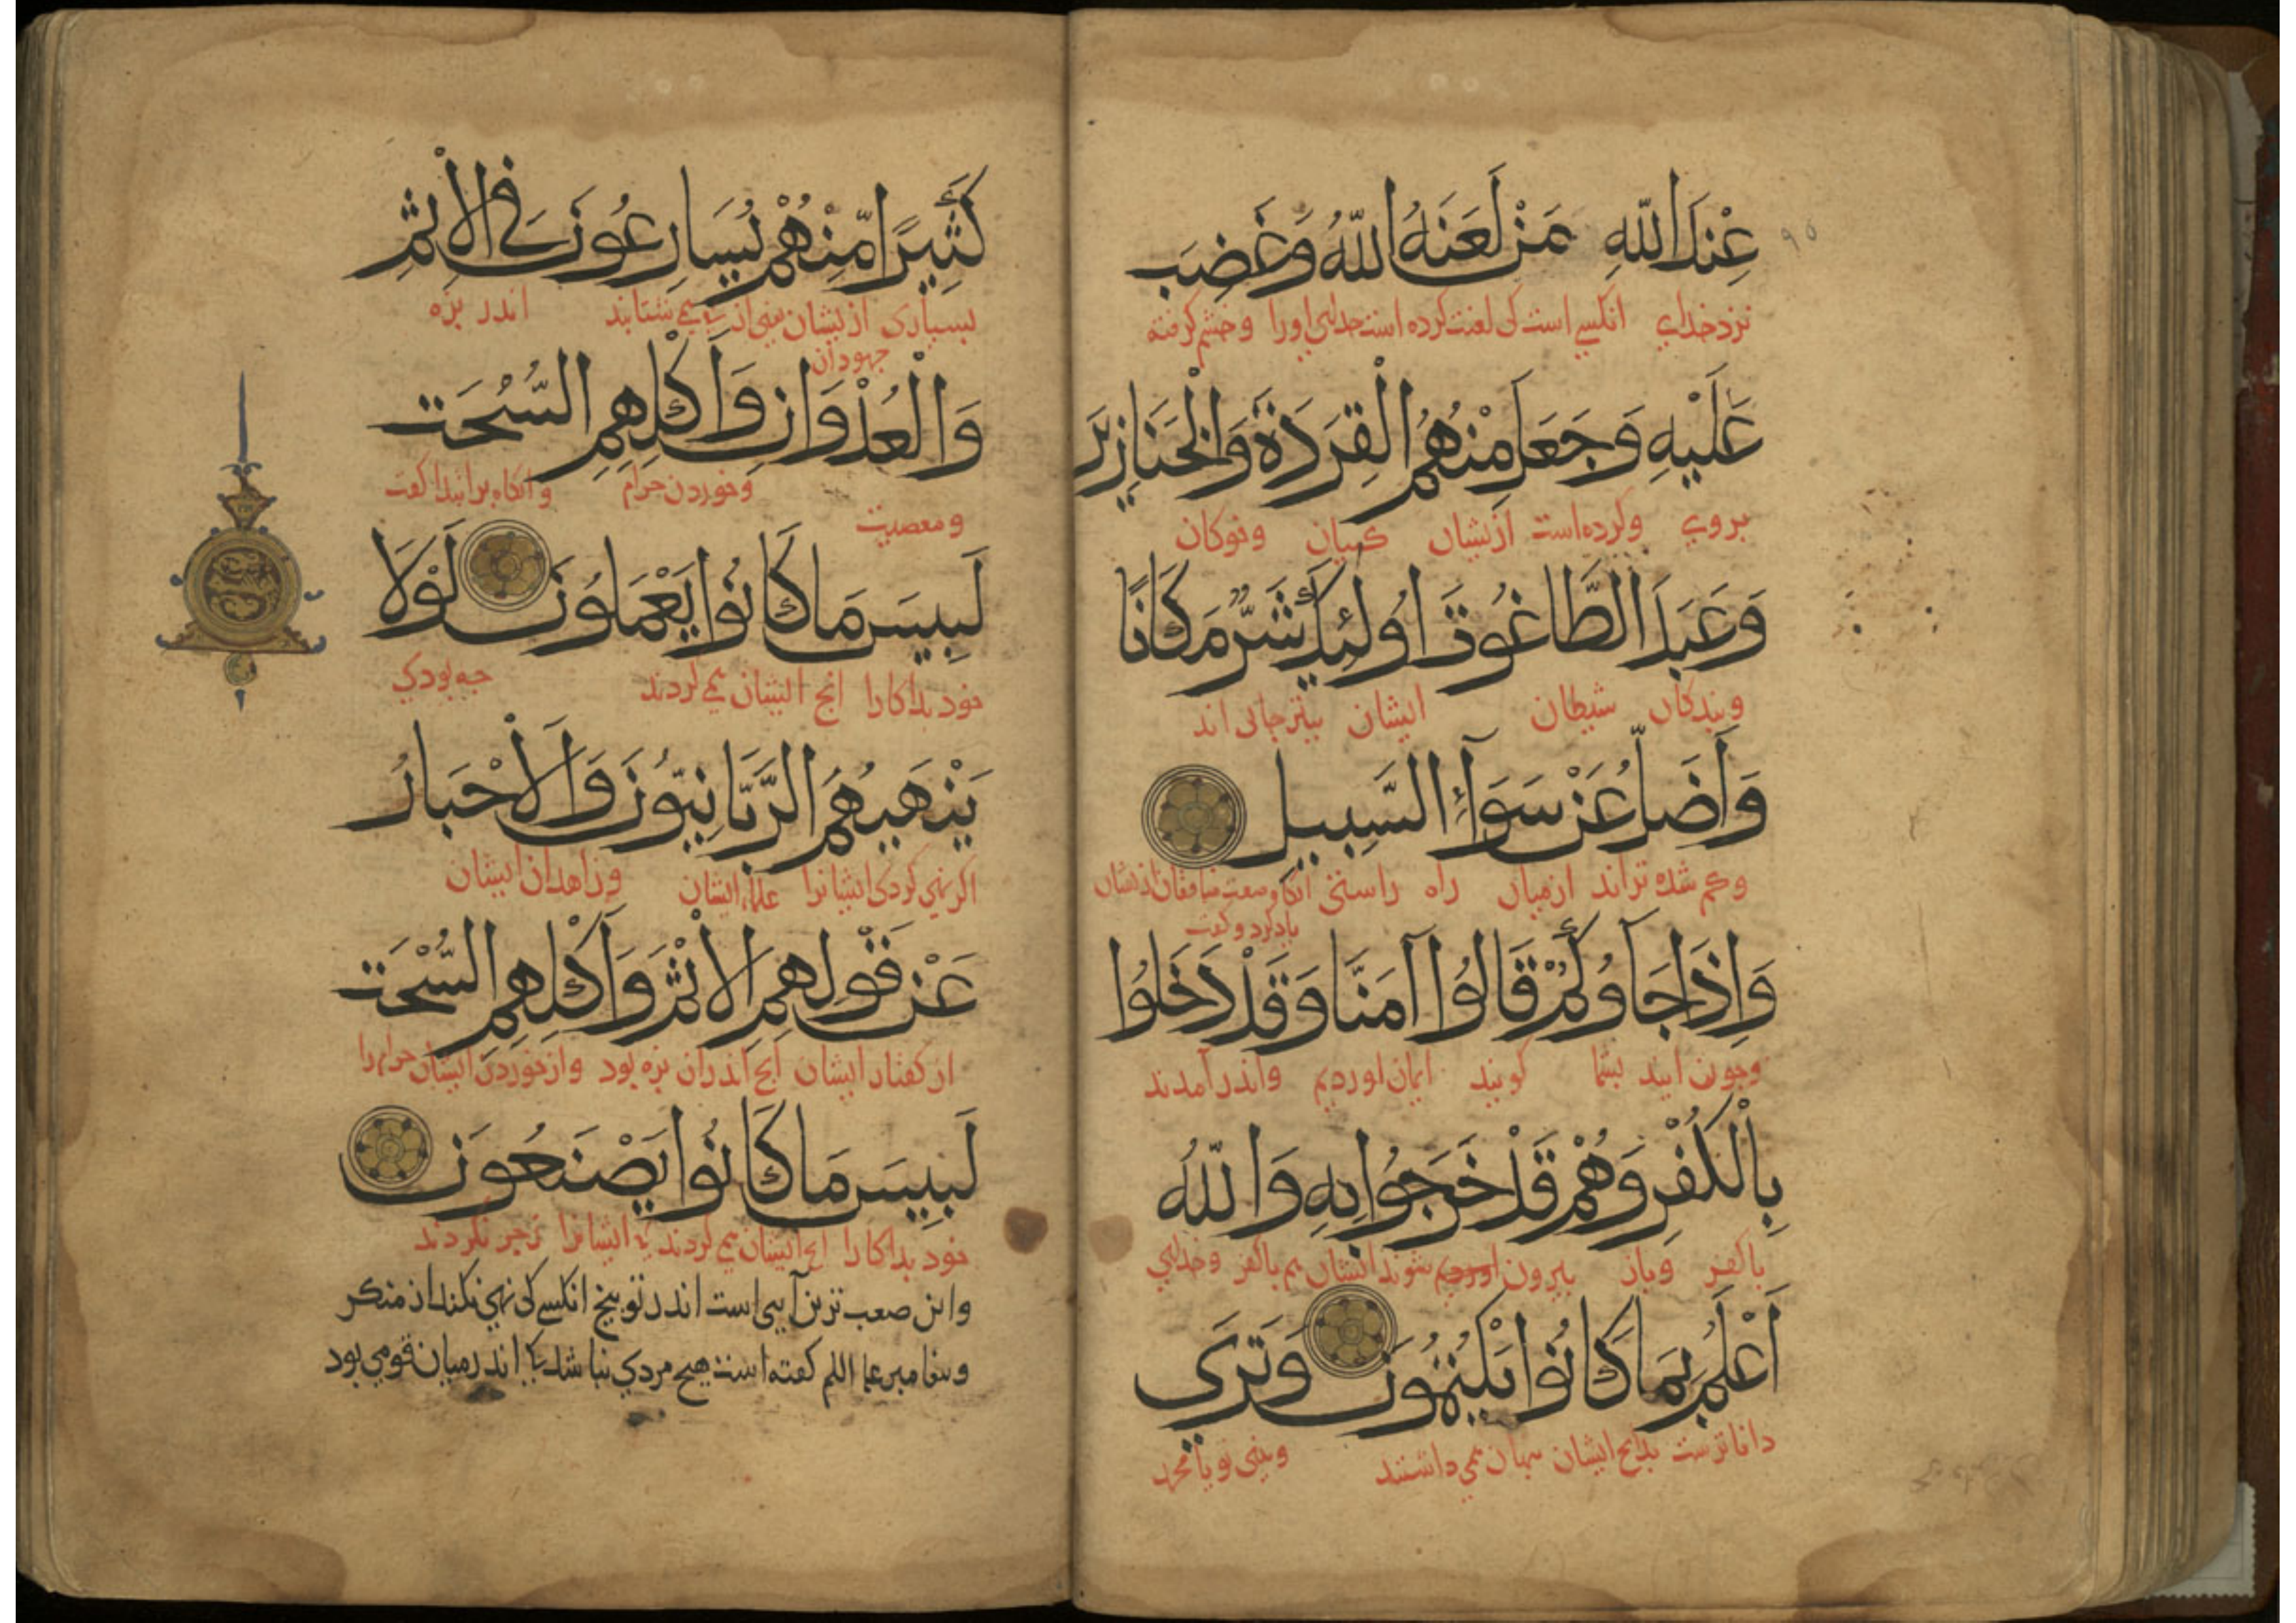 عِنْدَ اللّٰهِ مَنْ لَعَنَهُ اللّٰهُ وَغَضِبَ
نزد خداي انكسي است كي لعنت كرده است خداي اورا وخشم كرفته
عَلَيْهِ وَجَعَلَ مِنْهُمُ الْقِرَدَةَ وَالْخَنَازِيرَ
بروي وكرده است ازيشان كبيان وخوكان
وَعَبَدَ الطَّاغُوتَ اُولٰئِكَ شَرٌّ مَكَانًا
وبندكان شيطان ايشان بتر جاي اند
وَاَضَلُّ عَنْ سَوَآءِ السَّبِيلِ
وكم شده تراند ازميان راه راستي انكاه صفت منافقان ازيشان
ياد كرد و كفت
وَاِذَا جَآوُكُمْ قَالُوا آمَنَّا وَقَدْ دَخَلُوا
وجون ايند بشما كويند ايمان اورديم واندر آمدند
بِالْكُفْرِ وَهُمْ قَدْ خَرَجُوا بِهِ وَاللّٰهُ
باكفر وباز بيرون شوند ايشان هم باكفر وخداي
اَعْلَمُ بِمَا كَانُوا يَكْتُمُونَ وَتَرَى
داناترست بدانج ايشان بنهان همي داشتند وبيني تو يا محمد
كَثِيرًا مِنْهُمْ يُسَارِعُونَ فِي الْاِثْمِ
بسياري ازيشان يعني از همي شتابند اندر بزه
جهودان
وَالْعُدْوَانِ وَاَكْلِهِمِ السُّحْتَ
ومعصيت وخوردن حرام وانكاه برابتدا كفت
لَبِيسَ مَا كَانُوا يَعْمَلُونَ لَوْلَا
خود بدا كارا انج ايشان همي كردند جه بودي
يَنْهَيهُمُ الرَّبَّانِيُّونَ وَالْاَحْبَارُ
اكر نهي كردي ايشانرا علماء ايشان وزاهدان ايشان
عَنْ قَوْلِهِمِ الْاِثْمَ وَاَكْلِهِمِ السُّحْتَ
از كفتار ايشان انج اندران بزه بود وازخوردن ايشان حرام را
لَبِيسَ مَا كَانُوا يَصْنَعُونَ
خود بدا كارا انج ايشان همي كردند كي ايشانرا زجر نكردند
واين صعب ترين آيتي است اندر توبيخ انكسي كي نهي نكند از منكر
وبيغامبر عليه السلم كفته است هيج مردي نباشد كي اندر ميان قومي بود